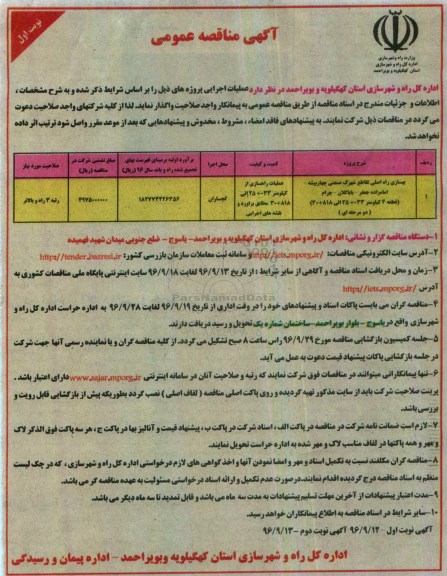 نوبت اول
آگهی مناقصه عمومی
وزارت راه و شهرسازی
اداره کل راه و شهرسازی
استان کهگیلویه و بویراحمد
اداره کل راه و شهرسازی استان کهگیلویه و بویراحمد در نظر دارد عملیات اجرایی پروژه های ذیل را بر اساس شرایط ذکر شده و به شرح مشخصات ،
اطلاعات و جزئیات مندرج در اسناد مناقصه از طریق مناقصه عمومی به پیمانکار واجد صلاحیت واگذار نماید. لذا از کلیه شرکتهای واجد صلاحیت دعوت
می گردد در مناقصات ذیل شرکت نمایند. به پیشنهادهای فاقد امضاء ، مشروط ، مخدوش و پیشنهادهایی که بعد از موعد مقرر واصل شود ترتیب اثر داده
نخواهد شد.
ردیف شرح پروژه کمیت و کیفیت محل اجرا برآورد اولیه بر مبنای فهرست بهای تجمیع شده راه و باند سال ۹۶ (ریال) مبلغ تضمین شرکت در مناقصه (ریال) صلاحیت مورد نیاز
۱ بهسازی راه اصلی تقاطع شهرک صنعتی چهاربیشه - امامزاده جعفر - باباکلان - چرام
گچساران ۱۸۳۷۷۴۴۲۶۳۵۶ ۴۹۷۵۰۰۰۰۰۰ رتبه ۳ راه و بالاتر
۱-دستگاه مناقصه گزار و نشانی: اداره کل راه و شهرسازی استان کهگیلویه و بویراحمد- یاسوج - ضلع جنوبی میدان شهید فهمیده
۲-آدرس سایت الکترونیکی مناقصات: http//iets.mporg.ir و سامانه ثبت معاملات سازمان بازرسی کشور: http//tender.bazresi.ir
۳-زمان و محل دریافت اسناد مناقصه و آگاهی از سایر شرایط : از تاریخ ۹۶/۹/۱۳ لغایت ۹۶/۹/۱۸ سایت اینترنتی پایگاه ملی مناقصات کشوری به
آدرس http//iets.mporg.ir
۴-مناقصه گران می بایست پاکات اسناد و پیشنهادهای خود را در وقت اداری از تاریخ ۹۶/۹/۱۹ لغایت ۹۶/۹/۲۸ به اداره حراست اداره کل راه و
شهرسازی واقع در یاسوج - بلوار بویراحمد -ساختمان شماره یک تحویل و رسید دریافت دارند.
۵-جلسه کمیسیون بازگشایی مناقصه مورخ ۹۶/۹/۲۹ راس ساعت ۸ صبح تشکیل می گردد. از کلیه مناقصه گران و یا نماینده رسمی آنها جهت شرکت
در جلسه بازگشایی پاکات پیشنهاد قیمت دعوت به عمل می آید.
۶-تنها پیمانکارانی میتوانند در مناقصات فوق شرکت نمایند که رتبه و صلاحیت آنان در سامانه اینترنتی www.sajar.mporg.ir دارای اعتبار باشد .
پرینت صلاحیت شرکت باید از سایت مذکور تهیه گردیده و روی پاکت اصلی مناقصه ( لفاف اصلی ) نصب گردد بطوریکه پیش از بازگشایی قابل رویت و
بررسی باشد.
۷-لازم است ضمانت نامه شرکت در مناقصه در پاکت الف ، اسناد شرکت در پاکت ب ، پیشنهاد قیمت و آنالیز بها در پاکت ج ، هر سه پاکت فوق الذکر لاک
و مهر و همه پاکتها در لفاف مناسب لاک و مهر شده به اداره حراست تحویل نمایند.
۸-مناقصه گران مکلفند نسبت به تکمیل اسناد و مهر و امضا نمودن آنها و اخذ گواهی های لازم درخواستی اداره کل راه و شهرسازی ، که در چک لیست
منظم به اسناد مناقصه درج گردیده اقدام نمایند. در صورت عدم تکمیل و ارائه اسناد درخواستی مسئولیت به عهده مناقصه گر می باشد.
۹-مدت اعتبار پیشنهادات از آخرین مهلت تسلیم پیشنهادات به مدت سه ماه می باشد و قابل تمدید تا سه ماه دیگر می باشد.
۱۰-سایر شرایط در اسناد مناقصه به اطلاع پیمانکاران خواهد رسید.
آگهی نوبت اول - ۹۶/۹/۱۲ آگهی نوبت دوم -۹۶/۹/۱۳
اداره کل راه و شهرسازی استان کهگیلویه وبویراحمد - اداره پیمان و رسیدگی